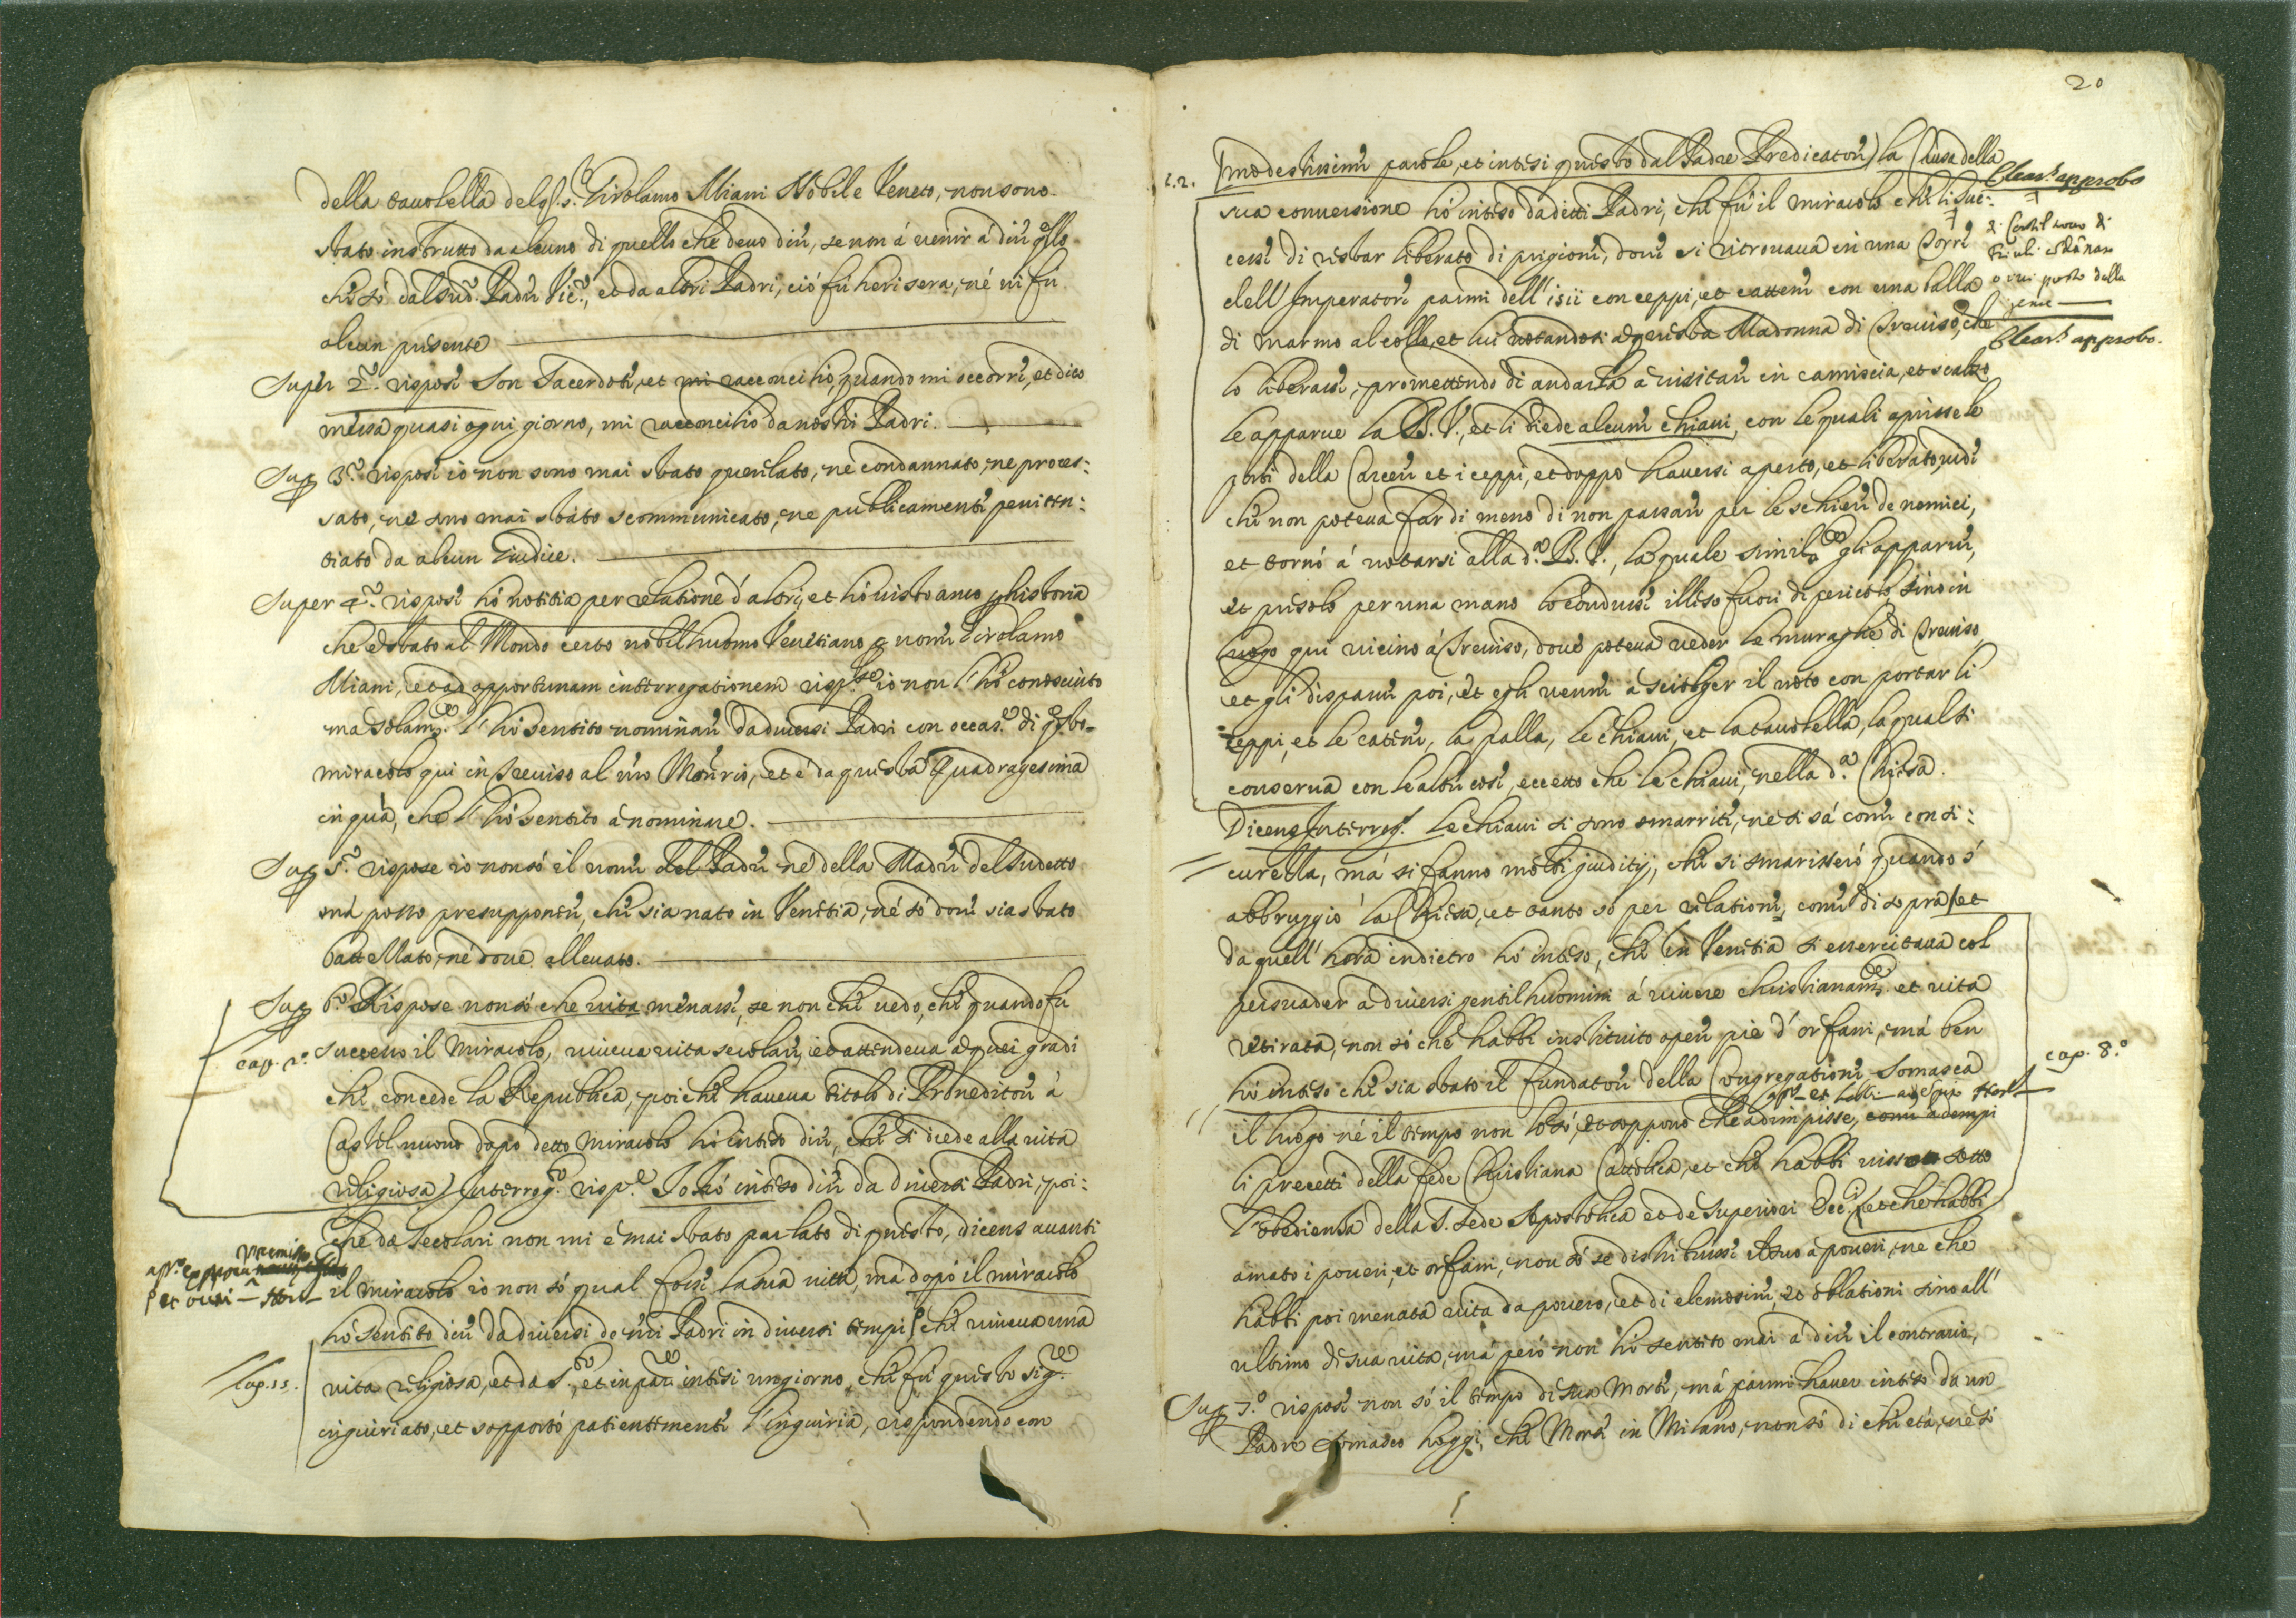 della tavolella del q. s.r Girolamo Miani Nobile Veneto, non sono
stato instrutto da alcuno di quello che devo dire, se non á venir á dire q.llo
che só dal sud.o Padre Vic.o, et da altri Padri, ció fú heri sera, né vi fú
alcun presente
Super 2.o rispose Son Sacerdote, et mi racconcilio, quando mi occorre, et dico
messa quasi ogni giorno, mi racconcilio da nostri Padri.
Sup 3.o rispose io non sono mai stato querelato, ne condannato, ne proces:
sato, ne sono mai stato scommunicato, ne publicamente peniten:
tiato da alcun Giudice.
Super 4.o rispose hó notitia per relatione d'altri, et hó visto anco p historia
che é stato al Mondo certo nobilhuomo Venetiano p nome Girolamo
Miani, et ad opportunam interrogationem risp.se io non l'hó conosciuto
ma solam.te l'hó sentito nominare da diversi Padri con occas.e di q.sto
miracolo qui in Treviso al n'ro Mon.rio, et é da questa Quadragesima
in quá, che l'hó sentito á nominare.
Sup 5.o rispose io non só il nome del Padre né della Madre del sudetto
má posso presupponere, che sia nato in Venetia, né só dove sia stato
battezzato, né dove allevato.
Sup 6.o Rispose non só che vita menasse, se non che vedo, che quando fú
cap. 2.o
successo il Miracolo, viveva vita secolare, et attendeva a quei gradi
che concede la Republica, poiche haveva titolo di Proveditore á
Castel nuovo dopo detto miracolo hó inteso dire, che si diede alla vita
religiosa) Interrog.o risp.e Io hó inteso dire da diversi Padri, poi:
che da secolari non mi é mai stato parlato di questo, dicens avanti
il miracolo io non só qual fosse la sua vitta, má dopó il miracolo
hó sentito dire da diversi de n'ri Padri in diversi tempi, che viveva una
cap. 11.
vita religiosa, et da s.to, et in par.re intesi un giorno, che fú questo sig.re
ingiuriato, et sopportó patientemente l'ingiuria, rispondendo con
20
modestissime parole, et intesi questo dal Padre Predicatore) la Causa della
c. 2.
sua conversione hó inteso da detti Padri, che fú il miracolo che li suc:
cesse di restar liberato di prigione, dove si ritrovava in una Torre
dell'Imperatore parmi dell'1511 con ceppi, et cattene con una balla
di marmo al collo, et lui votandosi á questa Madonna di Treviso, che
lo liberasse, promettendo di andarla á visitare in camiscia, et scalzo
le apparve la B. V., et li diede alcune chiavi, con le quali aprisse le
porte della Carcere et i ceppi, et doppo haversi aperto, et liberato, vide
che non poteva far di meno di non passare per le schiere de nemici,
et tornó á votarsi alla d.a B. V., la quale simil.te gli apparve,
et presolo per una mano lo condusse illeso fuori di pericolo, sino in
luogo qui vicino á Treviso, dove poteva veder le muraglie di Treviso
et gli disparve poi, et egli venne á sciolger il voto con portar li
ceppi, et le catene, la palla, le chiavi, et la tavolella, la qual si
conserva con le altre cose, eccetto che le chiavi, nella d.a Chiesa.
Dicens Interrog. Le chiavi si sono smarrite, né si sá come con si:
curezza, má si fanno molti giuditij, che si smarissero quando s'
abbruggió la Chiesa, et tanto só per relatione, come di sopra) et
da quell'hora indietro hó inteso, che in Venetia si essercitava col
persuader a diversi gentilhuomini á vivere christianam.te et vita
retirata, non só che habbi instituito opere pie d'orfani, má ben
hó inteso che sia stato il fundatore della Congregatione Somasca
cap. 8.o
il luogo né il tempo non lo só, et suppono che adimpisse, come adempi
li precetti della fede Christiana Cattolica, et che habbi visso sotto
l'obedienza della S. Sede Apostolica et de Superiori Ecc.i (et che habbi
amato i poveri, et orfani, non só se distribuisse il suo a poveri, ne che
habbi poi menata vita da povero, et di elemosine, et oblationi sino all'
ultimo di sua vita, má peró non hó sentito mai á dire il contrario,
Sup 7.o rispose non só il tempo di sua Morte, má parmi haver inteso da un
Padre Somasco hoggi, che Morì in Milano, non só di che etá, né só
Clear.s approbo
di Castel novo di
Clear.s approbo.